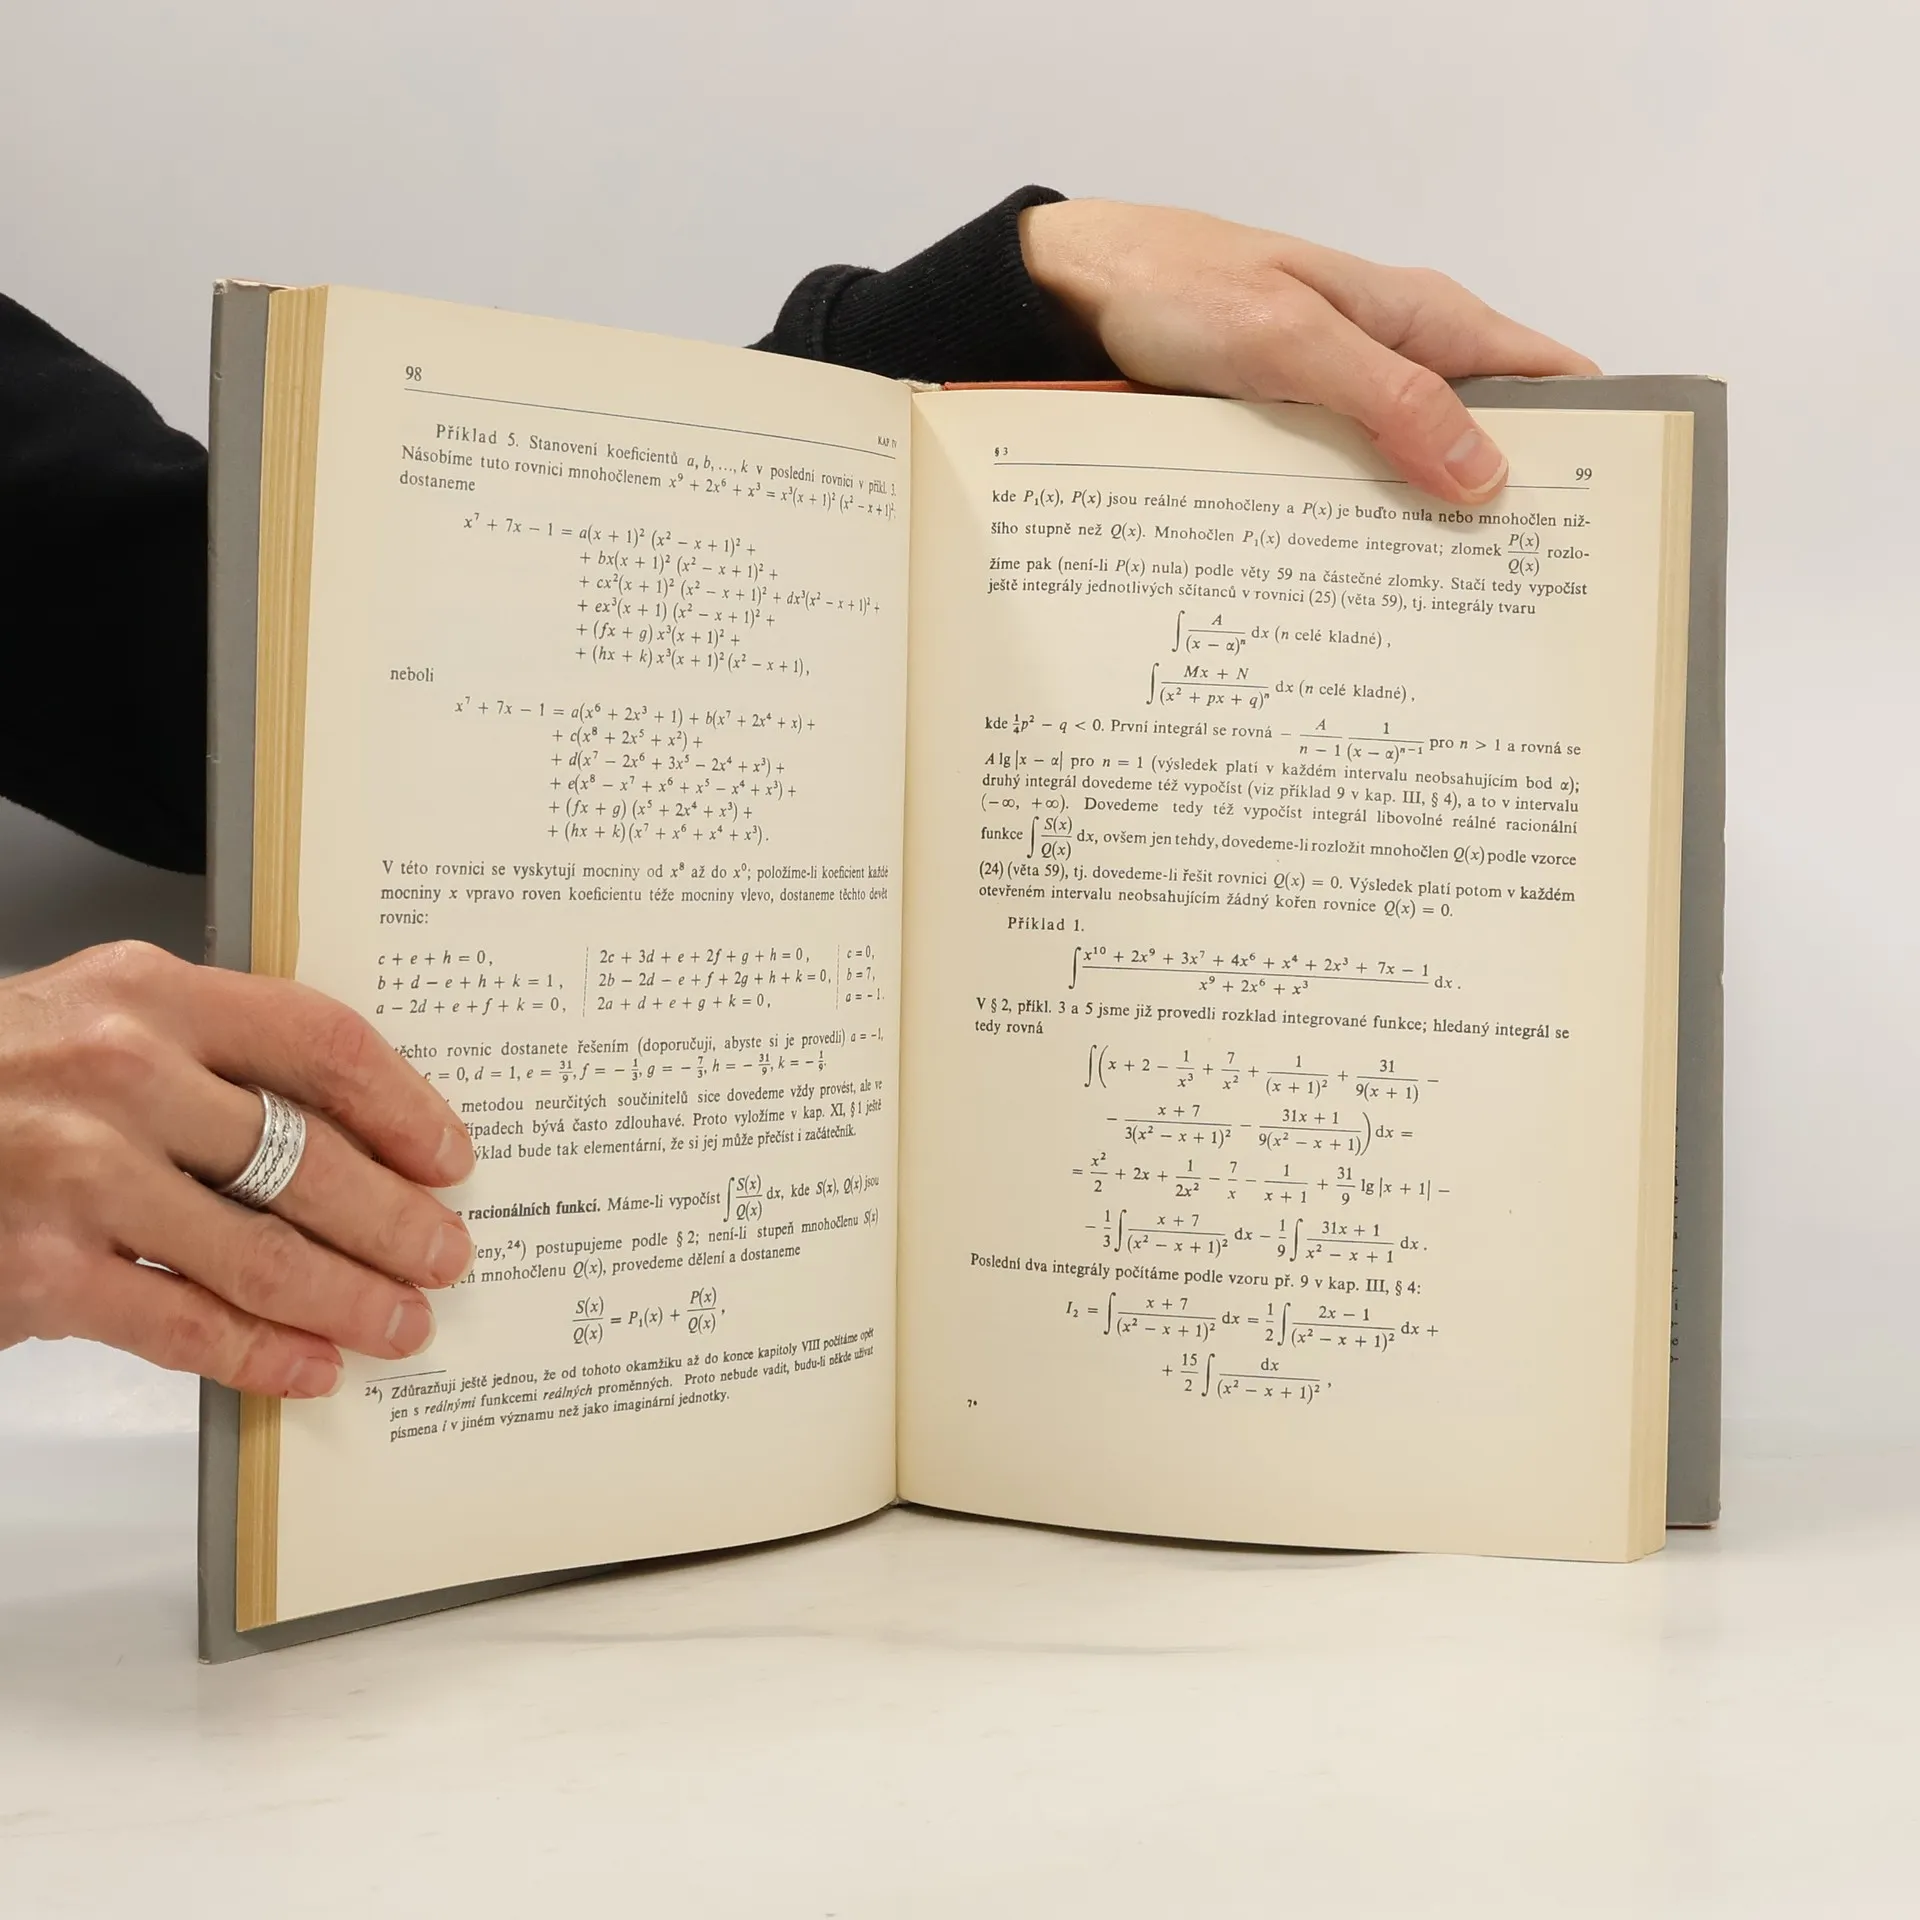 98
KAP IV
Příklad 5. Stanovení koeficientů a, b, ..., k v poslední rovnici v příkl. 3.
Násobíme tuto rovnici mnohočlenem x⁹ + 2x⁶ + x³ = x³(x + 1)² (x² − x + 1)²;
dostaneme
x⁷ + 7x − 1 = a(x + 1)² (x² − x + 1)² +
+ bx(x + 1)² (x² − x + 1)² +
+ cx²(x + 1)² (x² − x + 1)² + dx³(x² − x + 1)² +
+ ex³(x + 1) (x² − x + 1)² +
+ (fx + g) x³(x + 1)² +
+ (hx + k) x³(x + 1)² (x² − x + 1),
neboli
x⁷ + 7x − 1 = a(x⁶ + 2x³ + 1) + b(x⁷ + 2x⁴ + x) +
+ c(x⁸ + 2x⁵ + x²) +
+ d(x⁷ − 2x⁶ + 3x⁵ − 2x⁴ + x³) +
+ e(x⁸ − x⁷ + x⁶ + x⁵ − x⁴ + x³) +
+ (fx + g) (x⁵ + 2x⁴ + x³) +
+ (hx + k) (x⁷ + x⁶ + x⁴ + x³).
V této rovnici se vyskytují mocniny od x⁸ až do x⁰; položíme-li koeficient každé
mocniny x vpravo roven koeficientu téže mocniny vlevo, dostaneme těchto devět
rovnic:
c + e + h = 0, | 2c + 3d + e + 2f + g + h = 0, | c = 0,
b + d − e + h + k = 1, | 2b − 2d − e + f + 2g + h + k = 0, | b = 7,
a − 2d + e + f + k = 0, | 2a + d + e + g + k = 0, | a = − 1.
těchto rovnic dostanete řešením (doporučuji, abyste si je provedli) a = −1,
c = 0, d = 1, e = 31/9, f = − 1/3, g = − 7/3, h = − 31/9, k = − 1/9.
metodou neurčitých součinitelů sice dovedeme vždy provést, ale ve
řípadech bývá často zdlouhavé. Proto vyložíme v kap. XI, § 1 ještě
ýklad bude tak elementární, že si jej může přečíst i začátečník.
racionálních funkcí. Máme-li vypočíst ∫ S(x)/Q(x) dx, kde S(x), Q(x) jsou
leny,²⁴) postupujeme podle § 2; není-li stupeň mnohočlenu S(x)
ň mnohočlenu Q(x), provedeme dělení a dostaneme
S(x)/Q(x) = P₁(x) + P(x)/Q(x),
²⁴) Zdůrazňuji ještě jednou, že od tohoto okamžiku až do konce kapitoly VIII počítáme opět
jen s reálnými funkcemi reálných proměnných. Proto nebude vadit, budu-li někde užívat
písmena i v jiném významu než jako imaginární jednotky.
§ 3
99
kde P₁(x), P(x) jsou reálné mnohočleny a P(x) je buďto nula nebo mnohočlen niž-
šího stupně než Q(x). Mnohočlen P₁(x) dovedeme integrovat; zlomek P(x)/Q(x) rozlo-
žíme pak (není-li P(x) nula) podle věty 59 na částečné zlomky. Stačí tedy vypočíst
ještě integrály jednotlivých sčítanců v rovnici (25) (věta 59), tj. integrály tvaru
∫ A/(x − α)ⁿ dx (n celé kladné),
∫ (Mx + N)/(x² + px + q)ⁿ dx (n celé kladné),
kde ¼p² − q < 0. První integrál se rovná − A/(n − 1) 1/(x − α)ⁿ⁻¹ pro n > 1 a rovná se
A lg |x − α| pro n = 1 (výsledek platí v každém intervalu neobsahujícím bod α);
druhý integrál dovedeme též vypočíst (viz příklad 9 v kap. III, § 4), a to v intervalu
(−∞, +∞). Dovedeme tedy též vypočíst integrál libovolné reálné racionální
funkce ∫ S(x)/Q(x) dx, ovšem jen tehdy, dovedeme-li rozložit mnohočlen Q(x) podle vzorce
(24) (věta 59), tj. dovedeme-li řešit rovnici Q(x) = 0. Výsledek platí potom v každém
otevřeném intervalu neobsahujícím žádný kořen rovnice Q(x) = 0.
Příklad 1.
∫ (x¹⁰ + 2x⁹ + 3x⁷ + 4x⁶ + x⁴ + 2x³ + 7x − 1)/(x⁹ + 2x⁶ + x³) dx.
V § 2, příkl. 3 a 5 jsme již provedli rozklad integrované funkce; hledaný integrál se
tedy rovná
∫ (x + 2 − 1/x³ + 7/x² + 1/(x + 1)² + 31/9(x + 1) −
− (x + 7)/3(x² − x + 1)² − (31x + 1)/9(x² − x + 1)) dx =
= x²/2 + 2x + 1/2x² − 7/x − 1/(x + 1) + 31/9 lg |x + 1| −
− 1/3 ∫ (x + 7)/(x² − x + 1)² dx − 1/9 ∫ (31x + 1)/(x² − x + 1) dx.
Poslední dva integrály počítáme podle vzoru př. 9 v kap. III, § 4:
I₂ = ∫ (x + 7)/(x² − x + 1)² dx = 1/2 ∫ (2x − 1)/(x² − x + 1)² dx +
+ 15/2 ∫ dx/(x² − x + 1)²,
7*